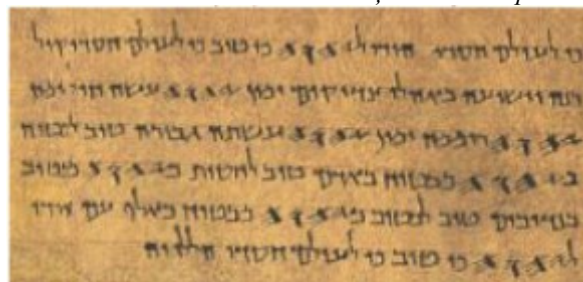 כי לעולם חסדו הודו ל𐤉𐤄𐤅𐤄 כי טוב כי לעולם חסדו קול
רנה וישועה באהלי צדיקים ימין 𐤉𐤄𐤅𐤄 עשה חיל ימין
𐤉𐤄𐤅𐤄 רוממה ימין 𐤉𐤄𐤅𐤄 עשתה גבורה טוב לבטוח
ב𐤉𐤄𐤅𐤄 מבטוח באדם טוב לחסות ב𐤉𐤄𐤅𐤄 מבטוח
בנדיבים טוב לבטוח ב𐤉𐤄𐤅𐤄 מבטוח באלף עם הודו
ל𐤉𐤄𐤅𐤄 כי טוב כי לעולם חסדו הללויה